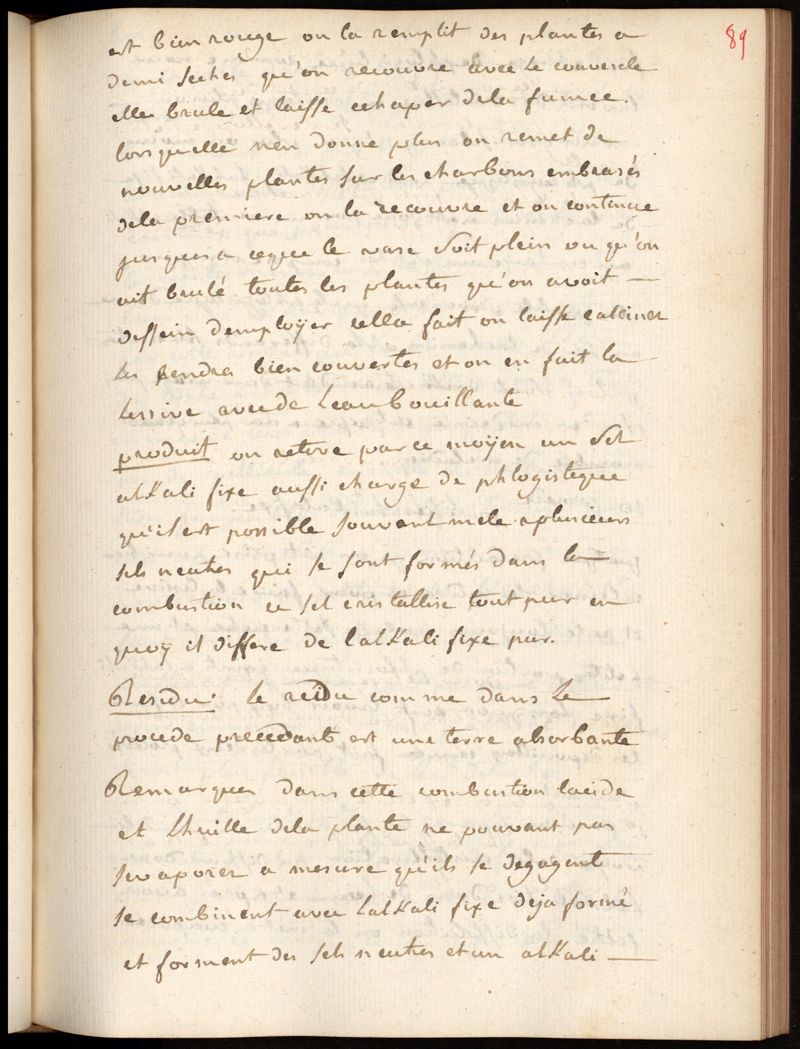 89
est bien rouge on la remplit des plantes a
demi seches qu'on recouvre avec le couvercle
elle brule et laisse echaper dela fumee.
lorsquelle nen donne plus on remet de
nouvelles plantes sur les charbons embrasés
dela premiere on la recouvre et on continue
jusques a ceque le vase soit plein ou qu'on
ait brulé toutes les plantes qu'on avoit —
dessein demploÿer cella fait on laisse calciner
les cendres bien couvertes et on en fait la
lessive avec de leau bouillante
produit on retire par ce moÿen un sel
alkali fixe aussi chargé de phlogistique
qu'il est possible souvent mele a plusieurs
sels neutres qui se sont formés dans la —
combustion ce sel cristallise tout pur en
quoÿ il differe de lalkali fixe pur.
Residu. le residu comme dans le —
procede precedant est une terre absorbante
Remarques dans cette combustion lacide
et lhuille dela plante ne pouvant pas
sevaporer a mesure qu'ils se degagent
se combinent avec lalkali fixe deja formé
et forment des sels neutres et un alkali —